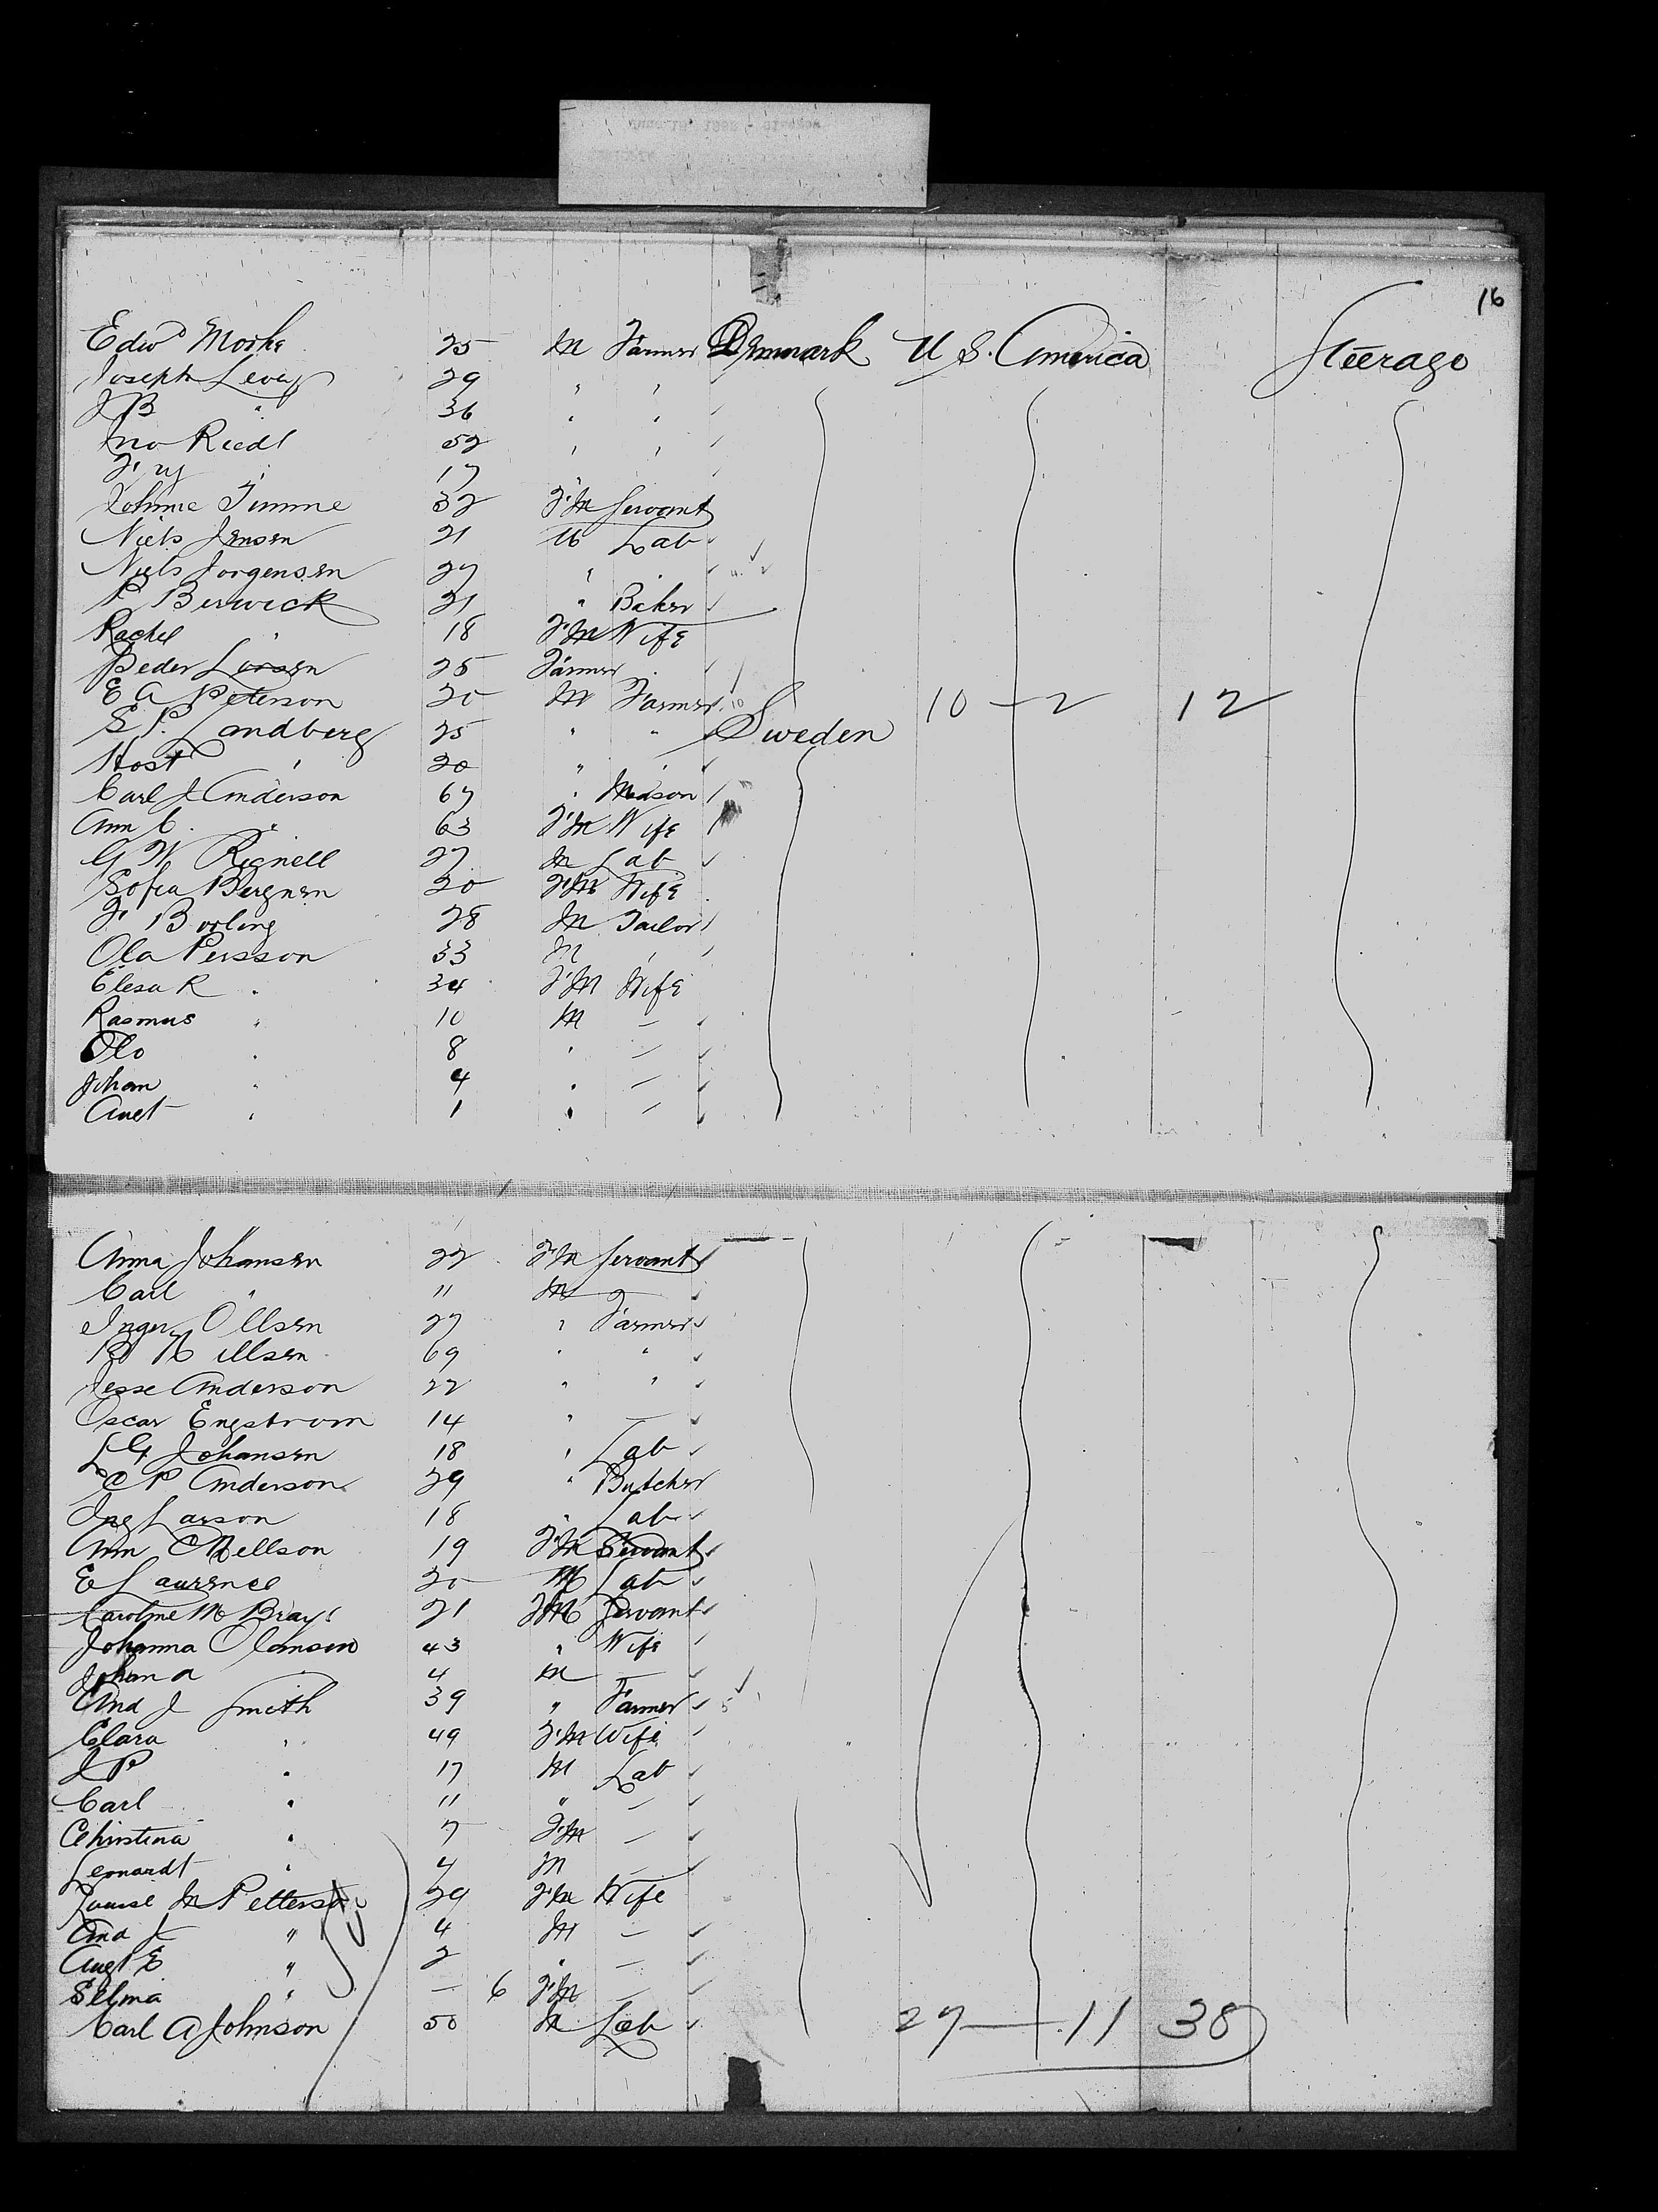 16
Edwd Morhe 25 M Farmer Denmark U S. America Steerage
Joseph Levy 29 " "
J B " 36 " "
Jno Riedl 52 " "
" 17 "
Johnne Timme 32 F'M Servant
Niels Jensen 21 M Lab
Niels Jorgensen 27 " "
P Berwick 21 " Baker
Rachel " 18 F'M Wife
Peder Larsen 25 Farmer
E A Peterson 20 M Farmer 10 — 2 12
S P. Landberg 25 " " Sweden
Host " 20 " "
Carl J Anderson 67 " Mason
Ann C. " 63 F'M Wife
G W Rignell 27 M Lab
Sofia Bergnen 20 F'M Wife
F Borling 28 M Tailor
Ola Persson 33 M "
Elesa R " 34 F'M Wife
Rasmus " 10 M —
Olo " 8 " —
Johan " 4 " —
Auet " 1 " —
Anna Johansen 22 F'M Servant
Carl " 11 M —
Inger Ollsen 27 " Farmer
69 " "
Jesse Anderson 22 " "
Oscar Engstrom 14 " —
L G Johansen 18 " Lab
C P Anderson 29 " Butcher
Larson 18 " Lab
Ann C Nellson 19 F'M Servant
E Laurence 20 M Lab
Caroline M Brays 21 F'M Servant
Johanna Olanson 43 " Wife
Johan A 4 M —
And J Smith 39 " Farmer 5
Clara " 49 F'M Wife
J P " 17 M Lab
Carl " 11 " —
Christina " 7 F'M —
Leonardt " 4 M —
Louise M Petterson 29 F'M Wife
And J " 4 M —
Augt E " 2 " —
Selma " — 6 F'M —
Carl A Johnson 50 M Lab 27 — 11 38